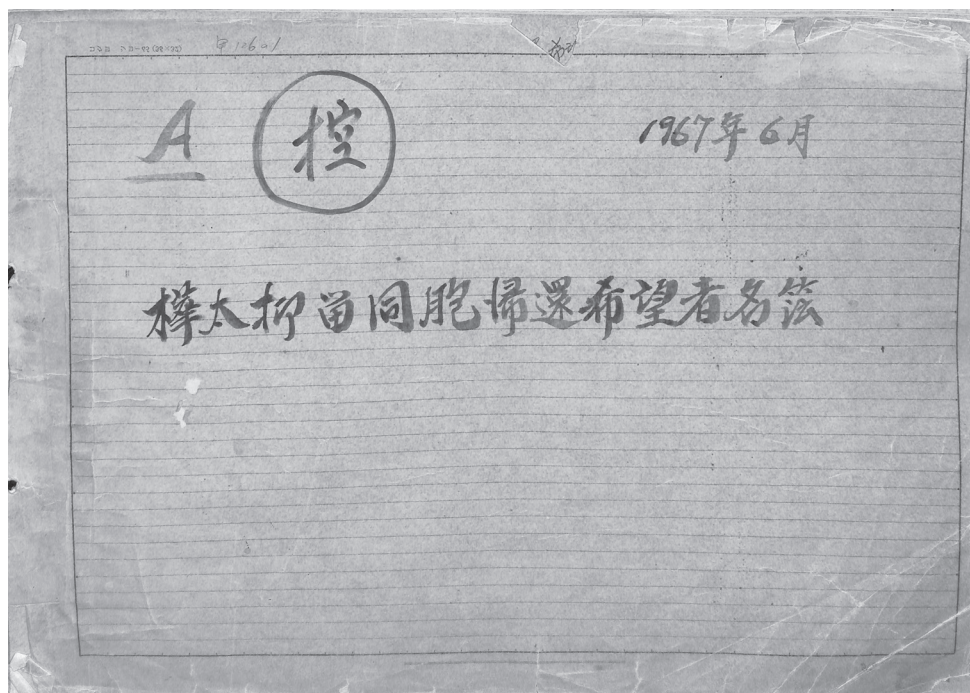 A 控 1967年6月
樺太抑畄同胞帰還希望者名簿